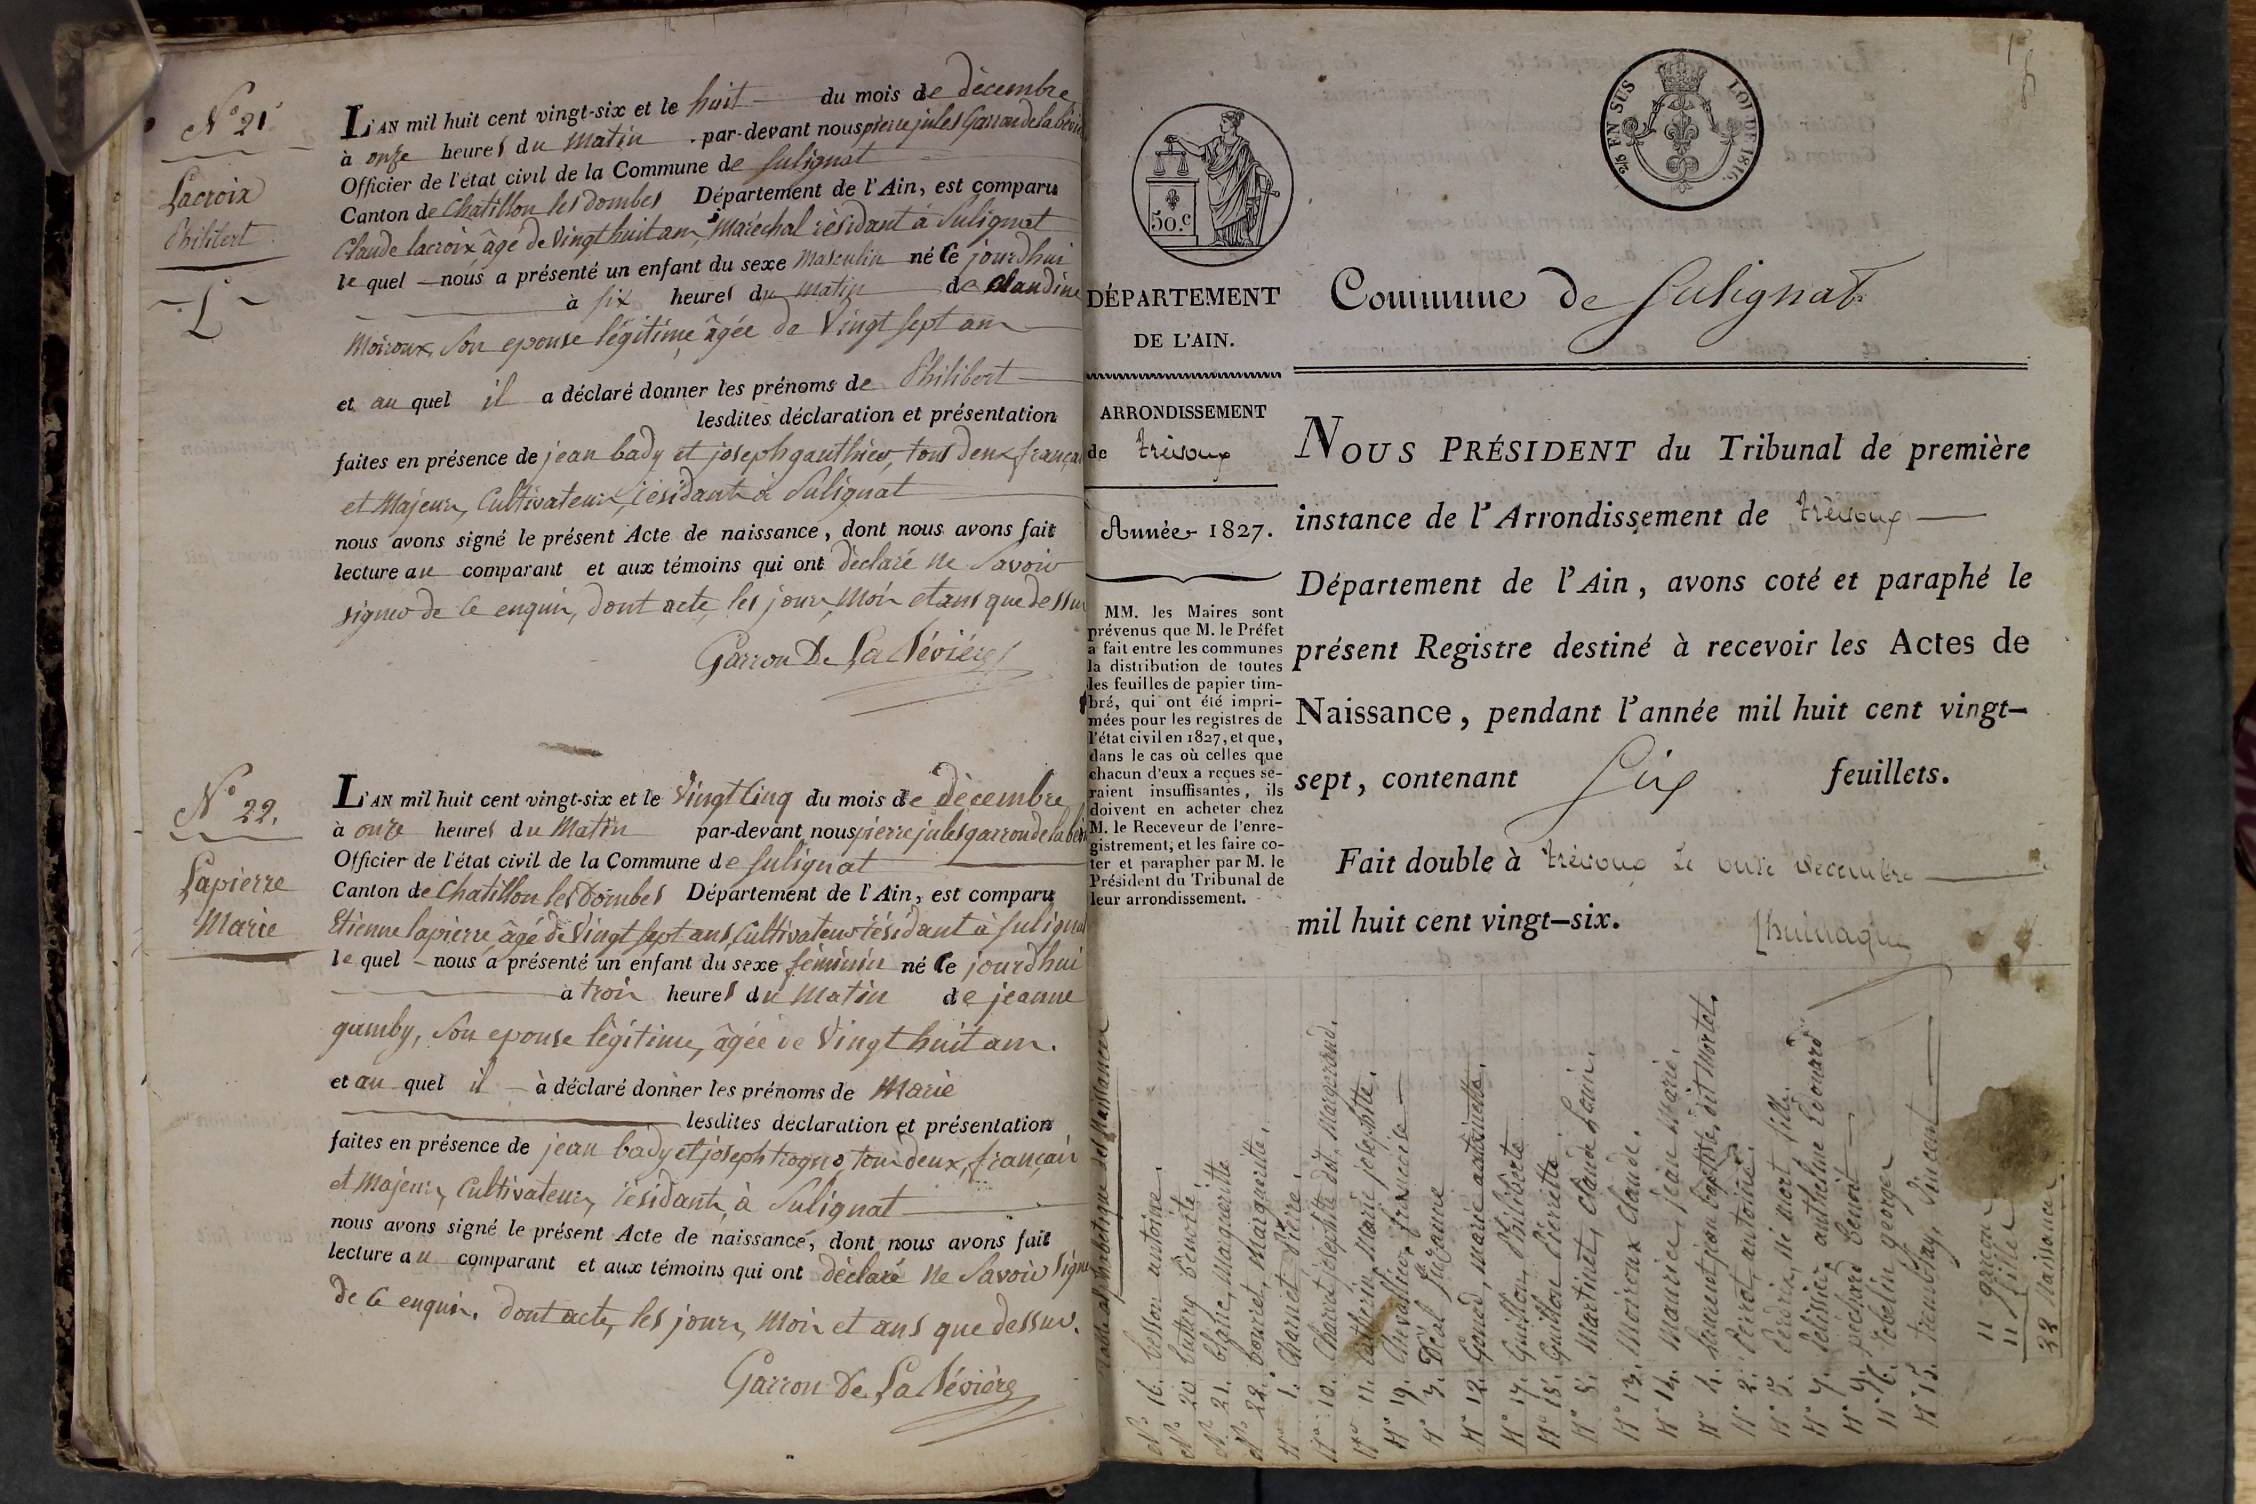 N° 21
Lacroix
Philibert
L'AN mil huit cent vingt-six et le huit du mois de décembre
à onze heures du matin par-devant nous pierre jules Garron de la bévière
Officier de l'état civil de la Commune de Sulignat
Canton de Chatillon les dombes Département de l'Ain, est comparu
Claude lacroix âgé de vingt huit ans, Maréchal résidant à Sulignat
le quel nous a présenté un enfant du sexe Masculin né ce jourdhui
à six heures du matin de claudine
Moiroux, Son epouse légitime âgée de Vingt sept ans
et au quel il a déclaré donner les prénoms de Philibert
lesdites déclaration et présentation
faites en présence de jean bady et joseph gauthier, tous deux français
et Majeurs, Cultivateurs, résidants à Sulignat
nous avons signé le présent Acte de naissance, dont nous avons fait
lecture au comparant et aux témoins qui ont déclaré ne Savoir
signer de ce enquis, dont acte, les jour, Mois et ans que dessus
Garron De La Bévière
N° 22.
Lapierre
Marie
L'AN mil huit cent vingt-six et le Vingt Cinq du mois de décembre
à onze heures du Matin par-devant nous pierre jules garron de la bévière
Officier de l'état civil de la Commune de Sulignat
Canton de Chatillon les Dombes Département de l'Ain, est comparu
Etienne lapierre, âgé de Vingt sept ans, Cultivateur résidant à Sulignat
le quel nous a présenté un enfant du sexe féminin né ce jourdhui
à trois heures du Matin de jeanne
gamby, Son epouse légitime, âgée de Vingt huit ans.
et au quel il à déclaré donner les prénoms de Marie
lesdites déclaration et présentation
faites en présence de jean bady et joseph tous deux, français
et Majeurs, Cultivateurs, résidants, à Sulignat
nous avons signé le présent Acte de naissance, dont nous avons fait
lecture au comparant et aux témoins qui ont déclaré ne Savoir Signer
de ce enquis. Dont acte, les jour, Mois et ans que dessus.
Garron De La Bévière
50.c
25 EN SUS LOI DE 1816.
DÉPARTEMENT
DE L'AIN.
ARRONDISSEMENT
de trévoux
Année 1827.
MM. les Maires sont
prévenus que M. le Préfet
a fait entre les communes
la distribution de toutes
les feuilles de papier tim-
bré, qui ont été impri-
mées pour les registres de
l'état civil en 1827, et que,
dans le cas où celles que
chacun d'eux a reçues se-
raient insuffisantes, ils
doivent en acheter chez
M. le Receveur de l'enre-
gistrement, et les faire co-
ter et parapher par M. le
Président du Tribunal de
leur arrondissement.
Commune de Sulignat
NOUS PRÉSIDENT du Tribunal de première
instance de l'Arrondissement de trévoux
Département de l'Ain, avons coté et paraphé le
présent Registre destiné à recevoir les Actes de
Naissance, pendant l'année mil huit cent vingt-
sept, contenant Six feuillets.
Fait double à trévoux le onze decembre
mil huit cent vingt-six.
Table alphabetique des Naissances
N° 16. besson antoine.
N° 20 buttery benoite.
N° 21. Marguerite
N° 22. bouriet, Marguerite.
N° 1. Charnet Pierre.
N° 10. josephte dit Margerand.
N° 11. Marie josephte.
N° 19. Chevallier, françoise
N° 3. Déal Suzanne
N° 12. Gonod, marie antoinette.
N° 17. Guillon, Philiberte
N° 18. Guillon Pierrette
N° 8. Martinet, Claude Louis.
N° 13. Moiroux Claude.
N° 14. Maurice, jean Marie.
N° 4. jean baptiste, dit Mortel.
N° 2. Perrot, antoine.
N° 5. Perdrix, né mort fille.
N° 7. Pelissier anthelme Edouard
N° 9. pochard benoit
N° 6. Robelin george
N° 15. Vincent
11 garçons
11 filles
22 Naissances